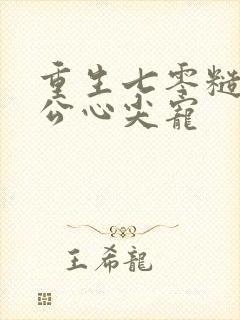 重生七零糙
公心尖宠
王希龍